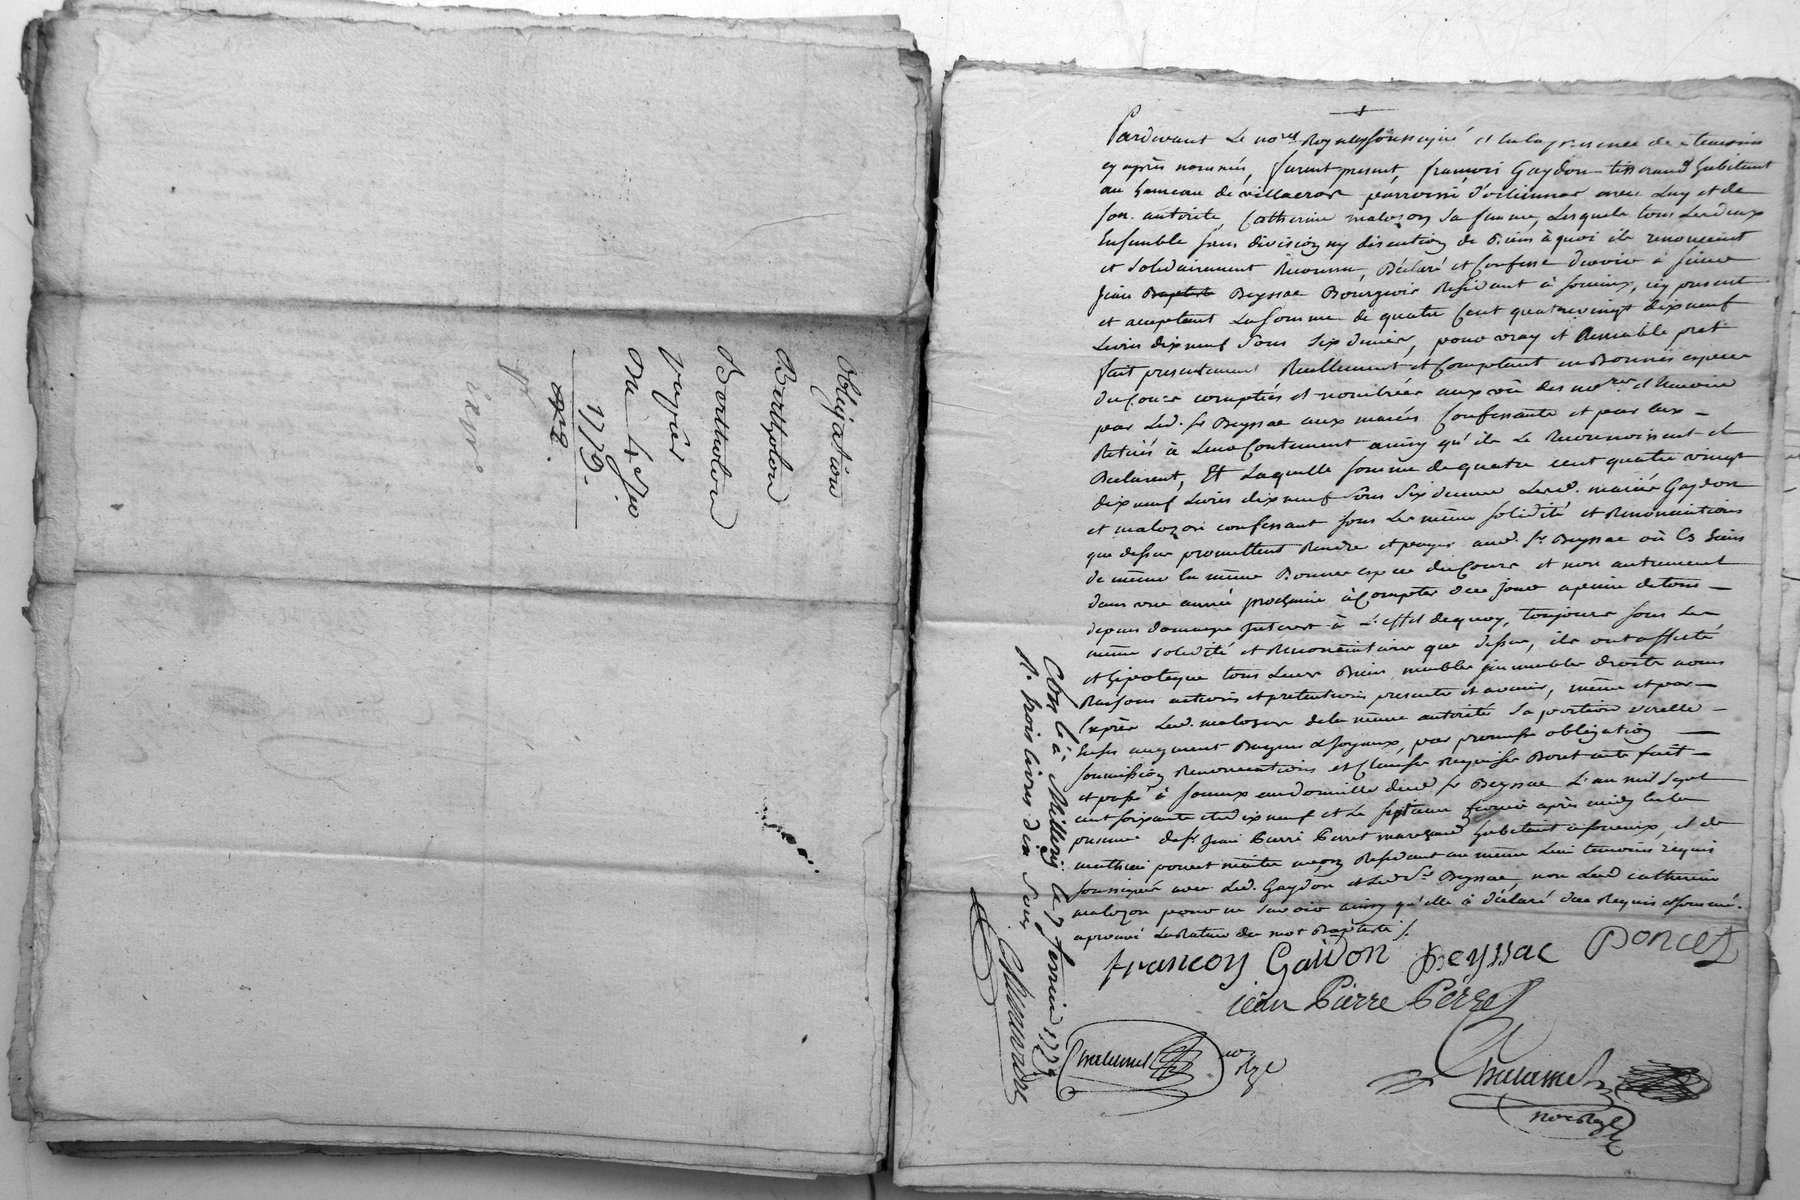 Obligation
Bertholon
Bertholon
du 4 Jer
1779.
Pardevant Le nore Royal soussigné et en la presence des temoins
cy après nommés, furent present, françois Gaydon tisserand habitant
au hameau de villacroz parroisse d'orlienas avec Luy et de
son autorité, Catherine malozon sa femme, Lesquels tous Les deux
Ensemble sans division ny discution de Biens à quoi ils renoncent
et solidairement Reconnu, Déclaré et Confessé devoir à sieur
Jean Baptiste Beyssac Bourgeois Residant à soucieux, icy present
et acceptant La somme de quatre Cent quatrevingt dixneuf
Livres dixneuf sous six deniers, pour vray et amiable pret
fait presentement Reellement et Comptant en Bonnes especes
du Cours comptées et nombrées aux vû des nores et temoins
par Led. sr Beyssac aux mariés Confessants et par Eux
Retirés à Leur Contentement ainsy qu'ils Le Reconnoissent et
Declarent, Et Laquelle somme de quatre cent quatre vingt
dixneuf Livres dixneuf sous six deniers Lesd. mariés Gaydon
et malozon confessant sous La même solidité et Renonciations
que dessus promettent Rendre et payer aud. sr Beyssac où Es siens
de même en même Bonnes especes du Cours et non autrement
dans une année prochaine à Compter de ce jour a peine de tous
depens domage Interest à L'effet de quoy, toujours sous La
même solidité et Renonciations que dessus, ils ont affecté
et hipoteque tous Leurs Biens meubles immeubles droits noms
Raisons actions et pretentions presents et avenir, même et par
Exprès Lad. malozon de la même autorité sa portion virelle
ses augment Bagues et Joyaux, par promesse obligation
soumission Renonciations et Clauses Requises Dont acte fait
et passé à soucieux au domicille dud. sr Beyssac L'an mil sept
cent soixante et dix neuf et Le septieme fevrier après midy en la
presence de sr Jean Pierre Perret marchand habitant à soucieux, et de
mathieu poncet maitre maçon Residant au même Lieu temoins requis
soussignés avec Led. Gaydon et Led. sr Beyssac, non Lad. catherine
malozon pour ne savoir ainsy qu'elle à déclaré de ce Requise et sommé.
aprouvé La Rature du mot Baptiste /.
francois Gaidon Beyssac Poncet
jean Pierre Perret
Chalamel
Chalamel
Conlé à Millery le 7 fevrier 1779
R. trois livres dix sous